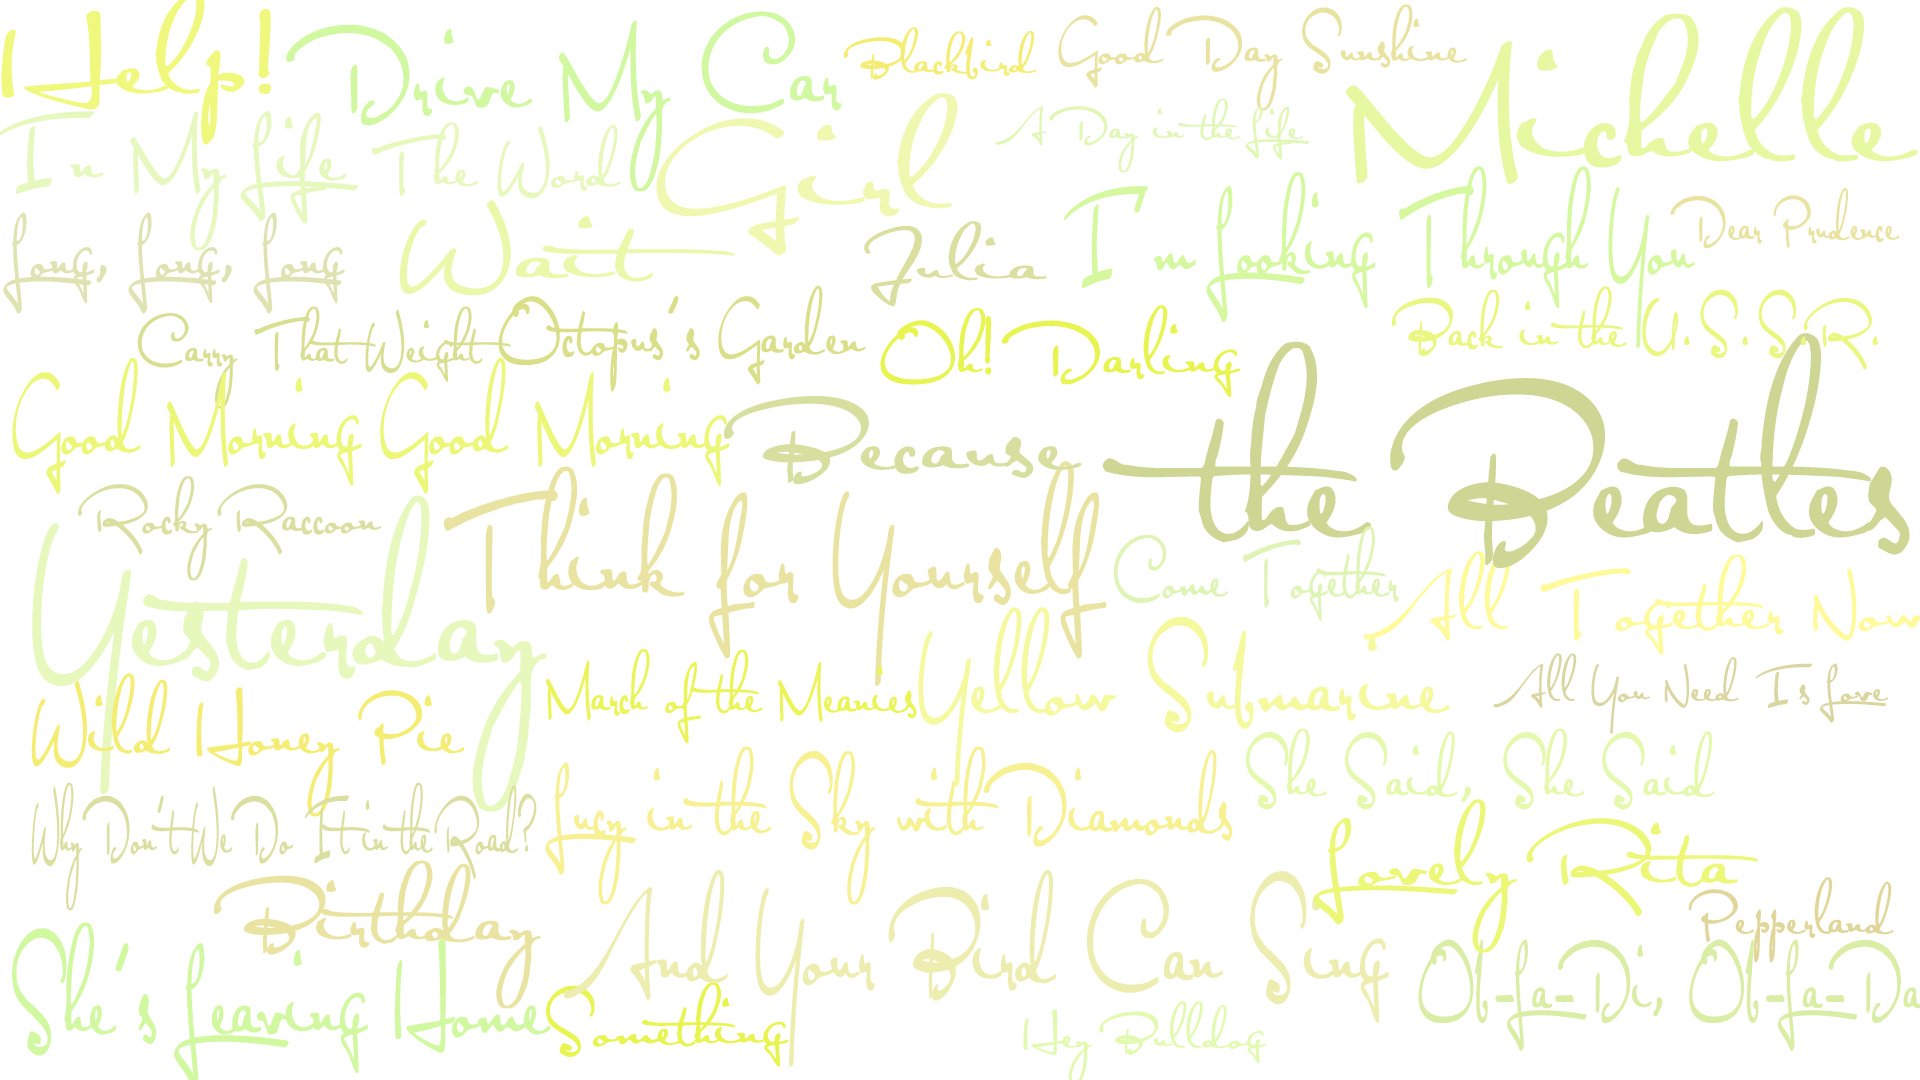 Help!
Drive My Car
Blackbird
Good Day Sunshine
Michelle
In My Life
The Word
Girl
A Day in the Life
Long, Long, Long
Wait
Julia
I'm Looking Through You
Dear Prudence
Carry That Weight
Octopus's Garden
Oh! Darling
Back in the U.S.S.R.
Good Morning Good Morning
Because
the Beatles
Rocky Raccoon
Think for Yourself
Yesterday
Come Together
All Together Now
Wild Honey Pie
March of the Meanies
Yellow Submarine
All You Need Is Love
Why Don't We Do It in the Road?
Lucy in the Sky with Diamonds
She Said, She Said
Lovely Rita
Birthday
And Your Bird Can Sing
Pepperland
She's Leaving Home
Something
Hey Bulldog
Ob-La-Di, Ob-La-Da